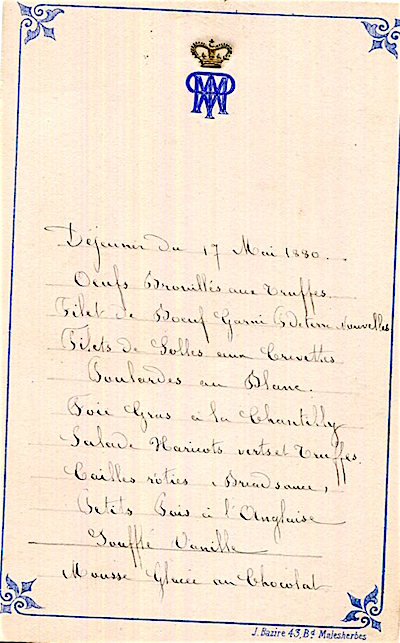 Déjeuner du 17 Mai 1880.
Oeufs Brouillés aux Truffes
Filet de Boeuf Garni P. de terre nouvelles
Filets de Solles aux Crevettes
Poulardes au Blanc.
Foie Gras à la Chantilly
Salade Haricots verts et Truffes.
Cailles rôties, Breadsauce,
Petits Pois à l'Anglaise
Soufflé Vanille
Mousse Glacée au Chocolat
J. Bazire 43, Bd Malesherbes